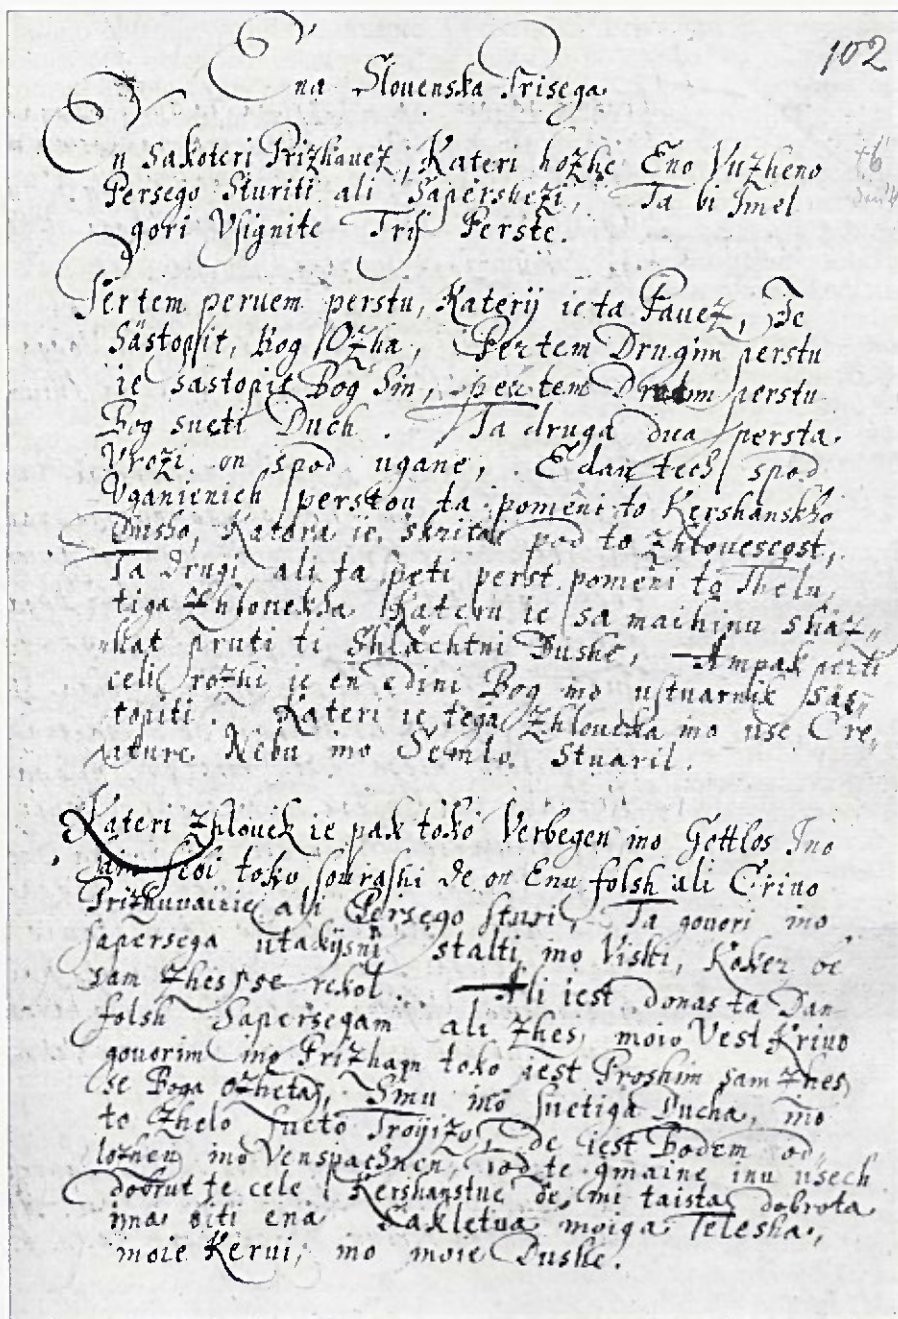 102
Ena Slouenska Prisega.
En Sakoteri Prizhauez, Kateri hozhe Eno Vuzheno
Persego Sturiti ali Sapershezi, Ta bi Imel
gori Vsignite Trij Perste.
Per tem peruem perstu, Katerij ie ta Pauez, Je
Sastopit, Bog Ozha, Per tem Drugim perstu
ie sastopit Bog Sin, per tem perstu
Bog sueti Duch. Ta druga dua persta
Vrozi on spod ugane, Edan tech spod
Uganienich perstou ta pomeni to Kershansko
Dusho, Katora ie skrita pod to Zhlouescost,
Ta drugi ali ta peti perst pomeni to Thelu
tiga Zhloueka Kateru ie sa maihinu shaz„
„hat pruti ti Shlachtni Dushe, Ampak perti
celi rozhi je en Edini Bog ino ustuarnik sas„
topiti. Kateri ie tega Zhloueka ino use Cre„
„ature Nebu ino Semlo Stuaril.
Kateri Zhlouek ie pak toko Verbegen ino Gottlos Ino
sam sebi toku sourashi de on Enu folsh ali Criuo
ali Persego sturi, Ta gouori ino
sapersega utakijsni stalti, ino Vishi, Koker be
sam zhes se rekol. Ali iest donas ta Dan
folsh Sapersegam ali zhes moio Vest Kriuo
gouorim ino Prizham toko iest Proshim sam zhes
se Boga Ozheta, Sinu ino suetiga Ducha, ino
to Zhelo sueto Troijizo, De iest Bodem od„
lozhen ino Venspachnen, od te gmaine inu usech
dobrut te cele Kershanstue de mi taista dobrota
ima biti ena Sakletua moiga Telesha,
moie Kerui, ino moie Dushe.